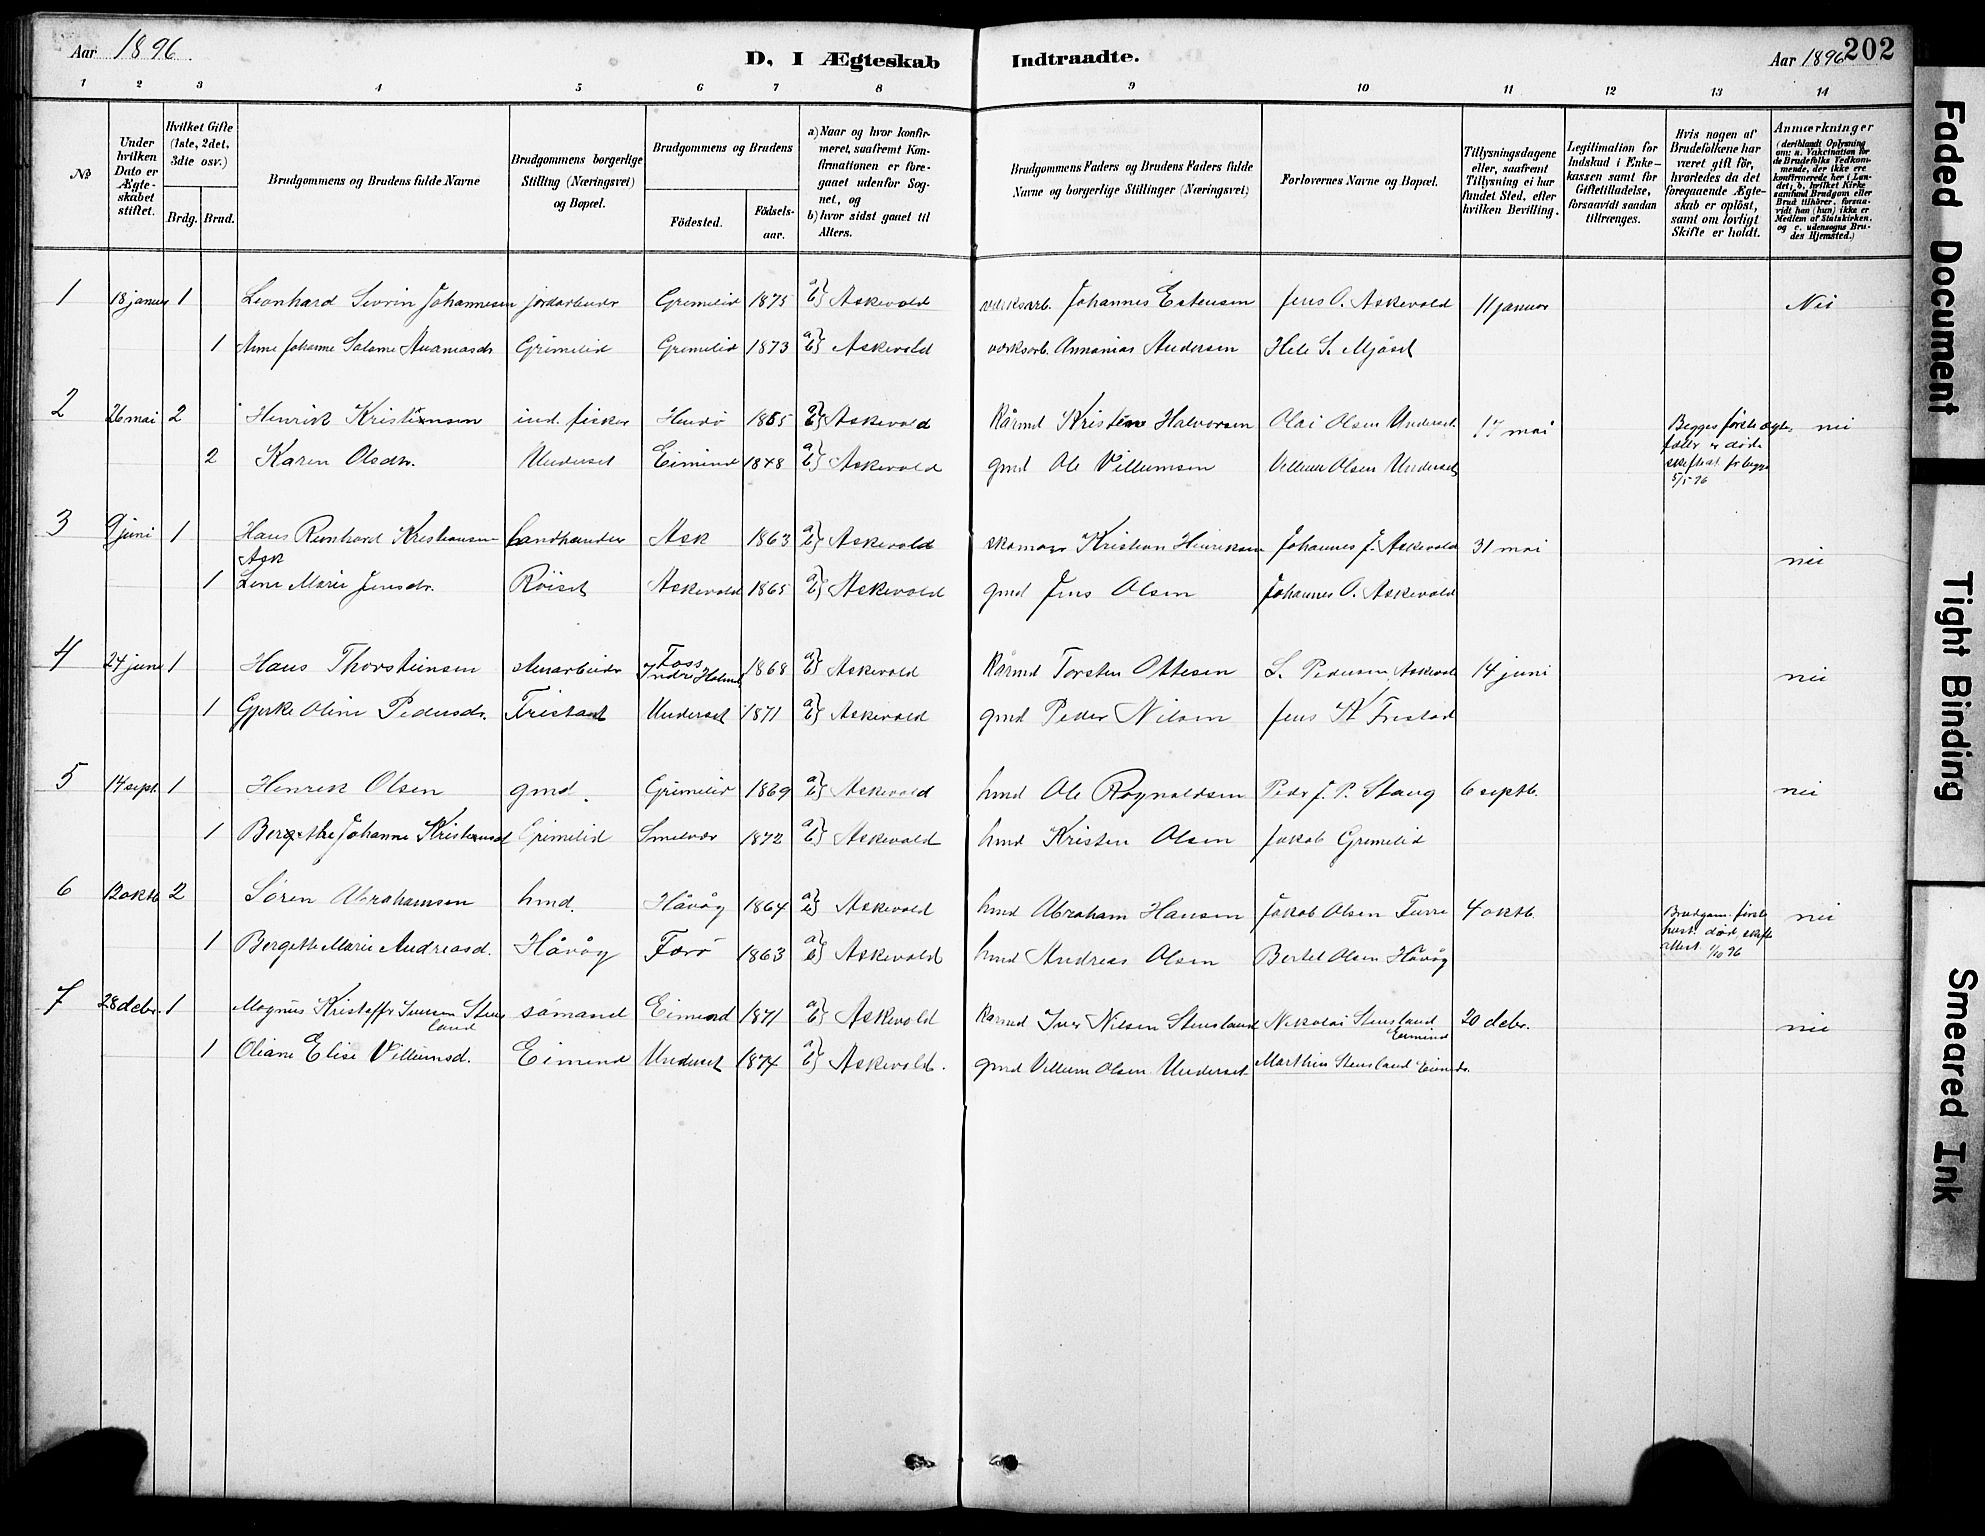 Aar 1896
D. I Ægteskab Indtraadte.
Aar 1896 202
1 2 3 4 5 6 7 8 9 10 11 12 13 14
No
Under hvilken Dato er Ægteskabet stiftet.
Hvilket Gifte (1ste, 2det, 3die osv.)
Brdg. Brud.
Brudgommens og Brudens fulde Navne
Brudgommens borgerlige Stilling (Næringsvei) og Bopæl.
Brudgommens og Brudens
Födested.
Födselsaar.
a) Naar og hvor konfirmeret, saafremt Konfirmationen er foregaaet udenfor Sognet, og
b) hvor sidst gaaet til Alters.
Brudgommens Faders og Brudens Faders fulde Navne og borgerlige Stillinger (Næringsvei)
Forlovernes Navne og Bopæl.
Tillysningsdagene eller, saafremt Tillysning ei har fundet Sted, efter hvilken Bevilling.
Legitimation for Indskud i Enkekassen samt for Giftetilladelse, forsaavidt saadan tiltrænges.
Hvis nogen af Brudefolkene har været gift för, hvorledes da det foregaaende Ægteskab er oplöst, samt om lovligt Skifte er holdt.
Anmærkninger (deriblandt Oplysning om: a. Vakcination for de Brudefolks Vedkommende, der ikke ere konfirmerede her i Landet; b. hvilket Kirkesamfund Brudgom eller Brud tilhörer, forsaavidt han (hun) ikke er Medlem af Statskirken, og c. udensogns Brudes Hjemsted.)
1 18 januar 1 Leonhard Sivrin Johannesen jordarbeider Grimelid 1875 a} b} Askevold verksarb. Johannes Estensen Jens O. Askevold 11 januar Nei
1 Anne Johanne Salome Ananiasdr Grimelid Grimelid 1873 a} b} Askevold verksarb. Annanias Andersen Hele S. Mjåset
2 26 mai 2 Henrik Kristensen ind. fisker Hendö 1855 a} b} Askevold Kårmd Kristen Halvorsen Olai Olsen Underset 17 mai Begges förste ægtefæler er död. skifteat. for begge 5/5 96 nei
2 Karen Olsdr. Underset Eimind 1848 a} b} Askevold gmd Ole Villumsen Villum Olsen Underset
3 9 juni 1 Hans Reinhard Kristiansen Ask Landhandler Ask 1863 a} b} Askevold skomager Kristian Henriksen Johannes J. Askevold 31 mai nei
1 Lene Marie Jensdr. Röiset Askevold 1865 a} b} Askevold gmd Jens Olsen Johannes O. Askevold
4 24 juni 1 Hans Thorsteinsen Stenarbeider Foss Indre Holmed. 1868 a} b} Askevold Kårmd Torsten Ottesen S. Pedersen Askevold 14 juni nei
1 Gjerke Oline Pedersdr. Fristad Underset 1871 a} b} Askevold gmd Peder Nilsen Jens K Fristad
5 14 sept. 1 Henrik Olsen gmd. Grimelid 1869 a} b} Askevold hmd Ole Ragnaldsen Peder J. P. Stang 6 septb. nei
1 Bergethe Johanne Kristensd Grimelid Smelvær 1872 a} b} Askevold hmd Kristen Olsen Jakob Grimelid
6 12 oktb 2 Sören Abrahamsen hmd. Håvåg 1864 a} b} Askevold hmd Abraham Hansen Jakob Olsen Furre 4 oktb. Brudgom. förste hust. död, skifteattest. 1/10 96 nei
1 Bergethe Marie Andreasd. Håvåg Færö 1863 a} b} Askevold hmd Andreas Olsen Bertel Olsen Håvåg
7 28 debr. 1 Magnus Kristoffer Iversen Stensland sömand Eimend 1871 a} b} Askevold Kårmd Iver Nilsen Stensland Nikolai Stensland Eimind 20 debr. nei
1 Oliane Elise Villumsd. Eimend Underset 1874 a} b} Askevold. gmd Villum Olsen Underset. Marthin Stensland Eimind.
Faded Document
Tight Binding
Smeared Ink